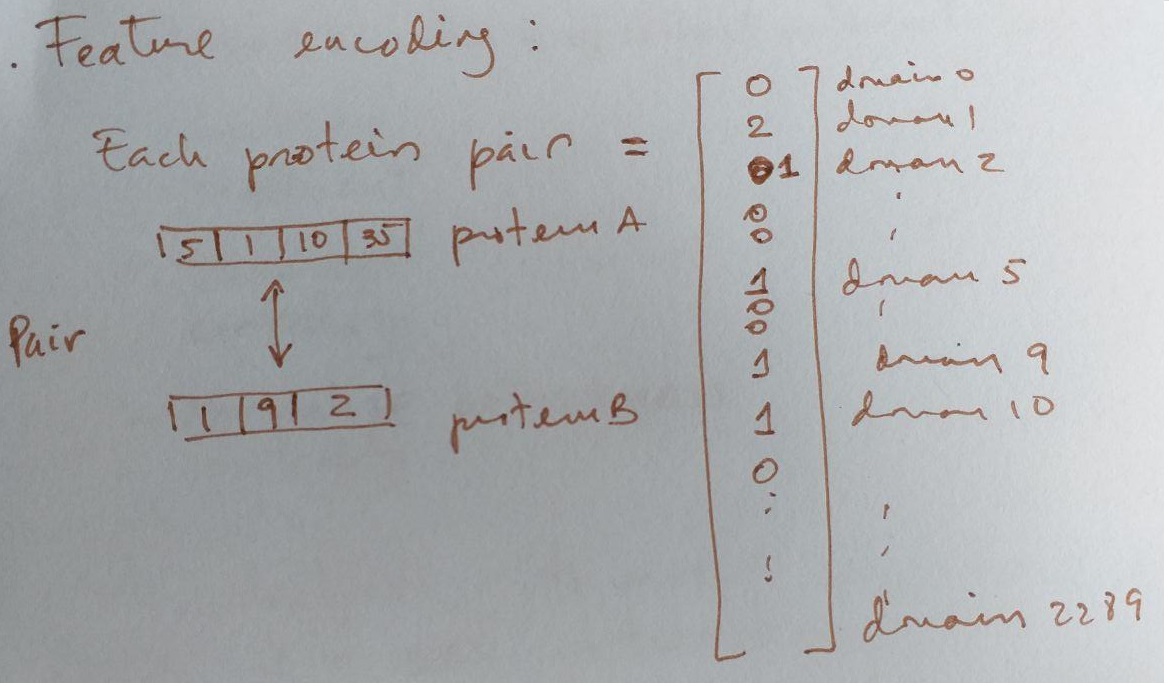 . Feature encoding :
Each protein pair =
5 1 10 35 protein A
Pair
1 9 2 protein B
0 domain 0
2 domain 1
1 domain 2
0
0
1 domain 5
0
0
1 domain 9
1 domain 10
0
domain 2289